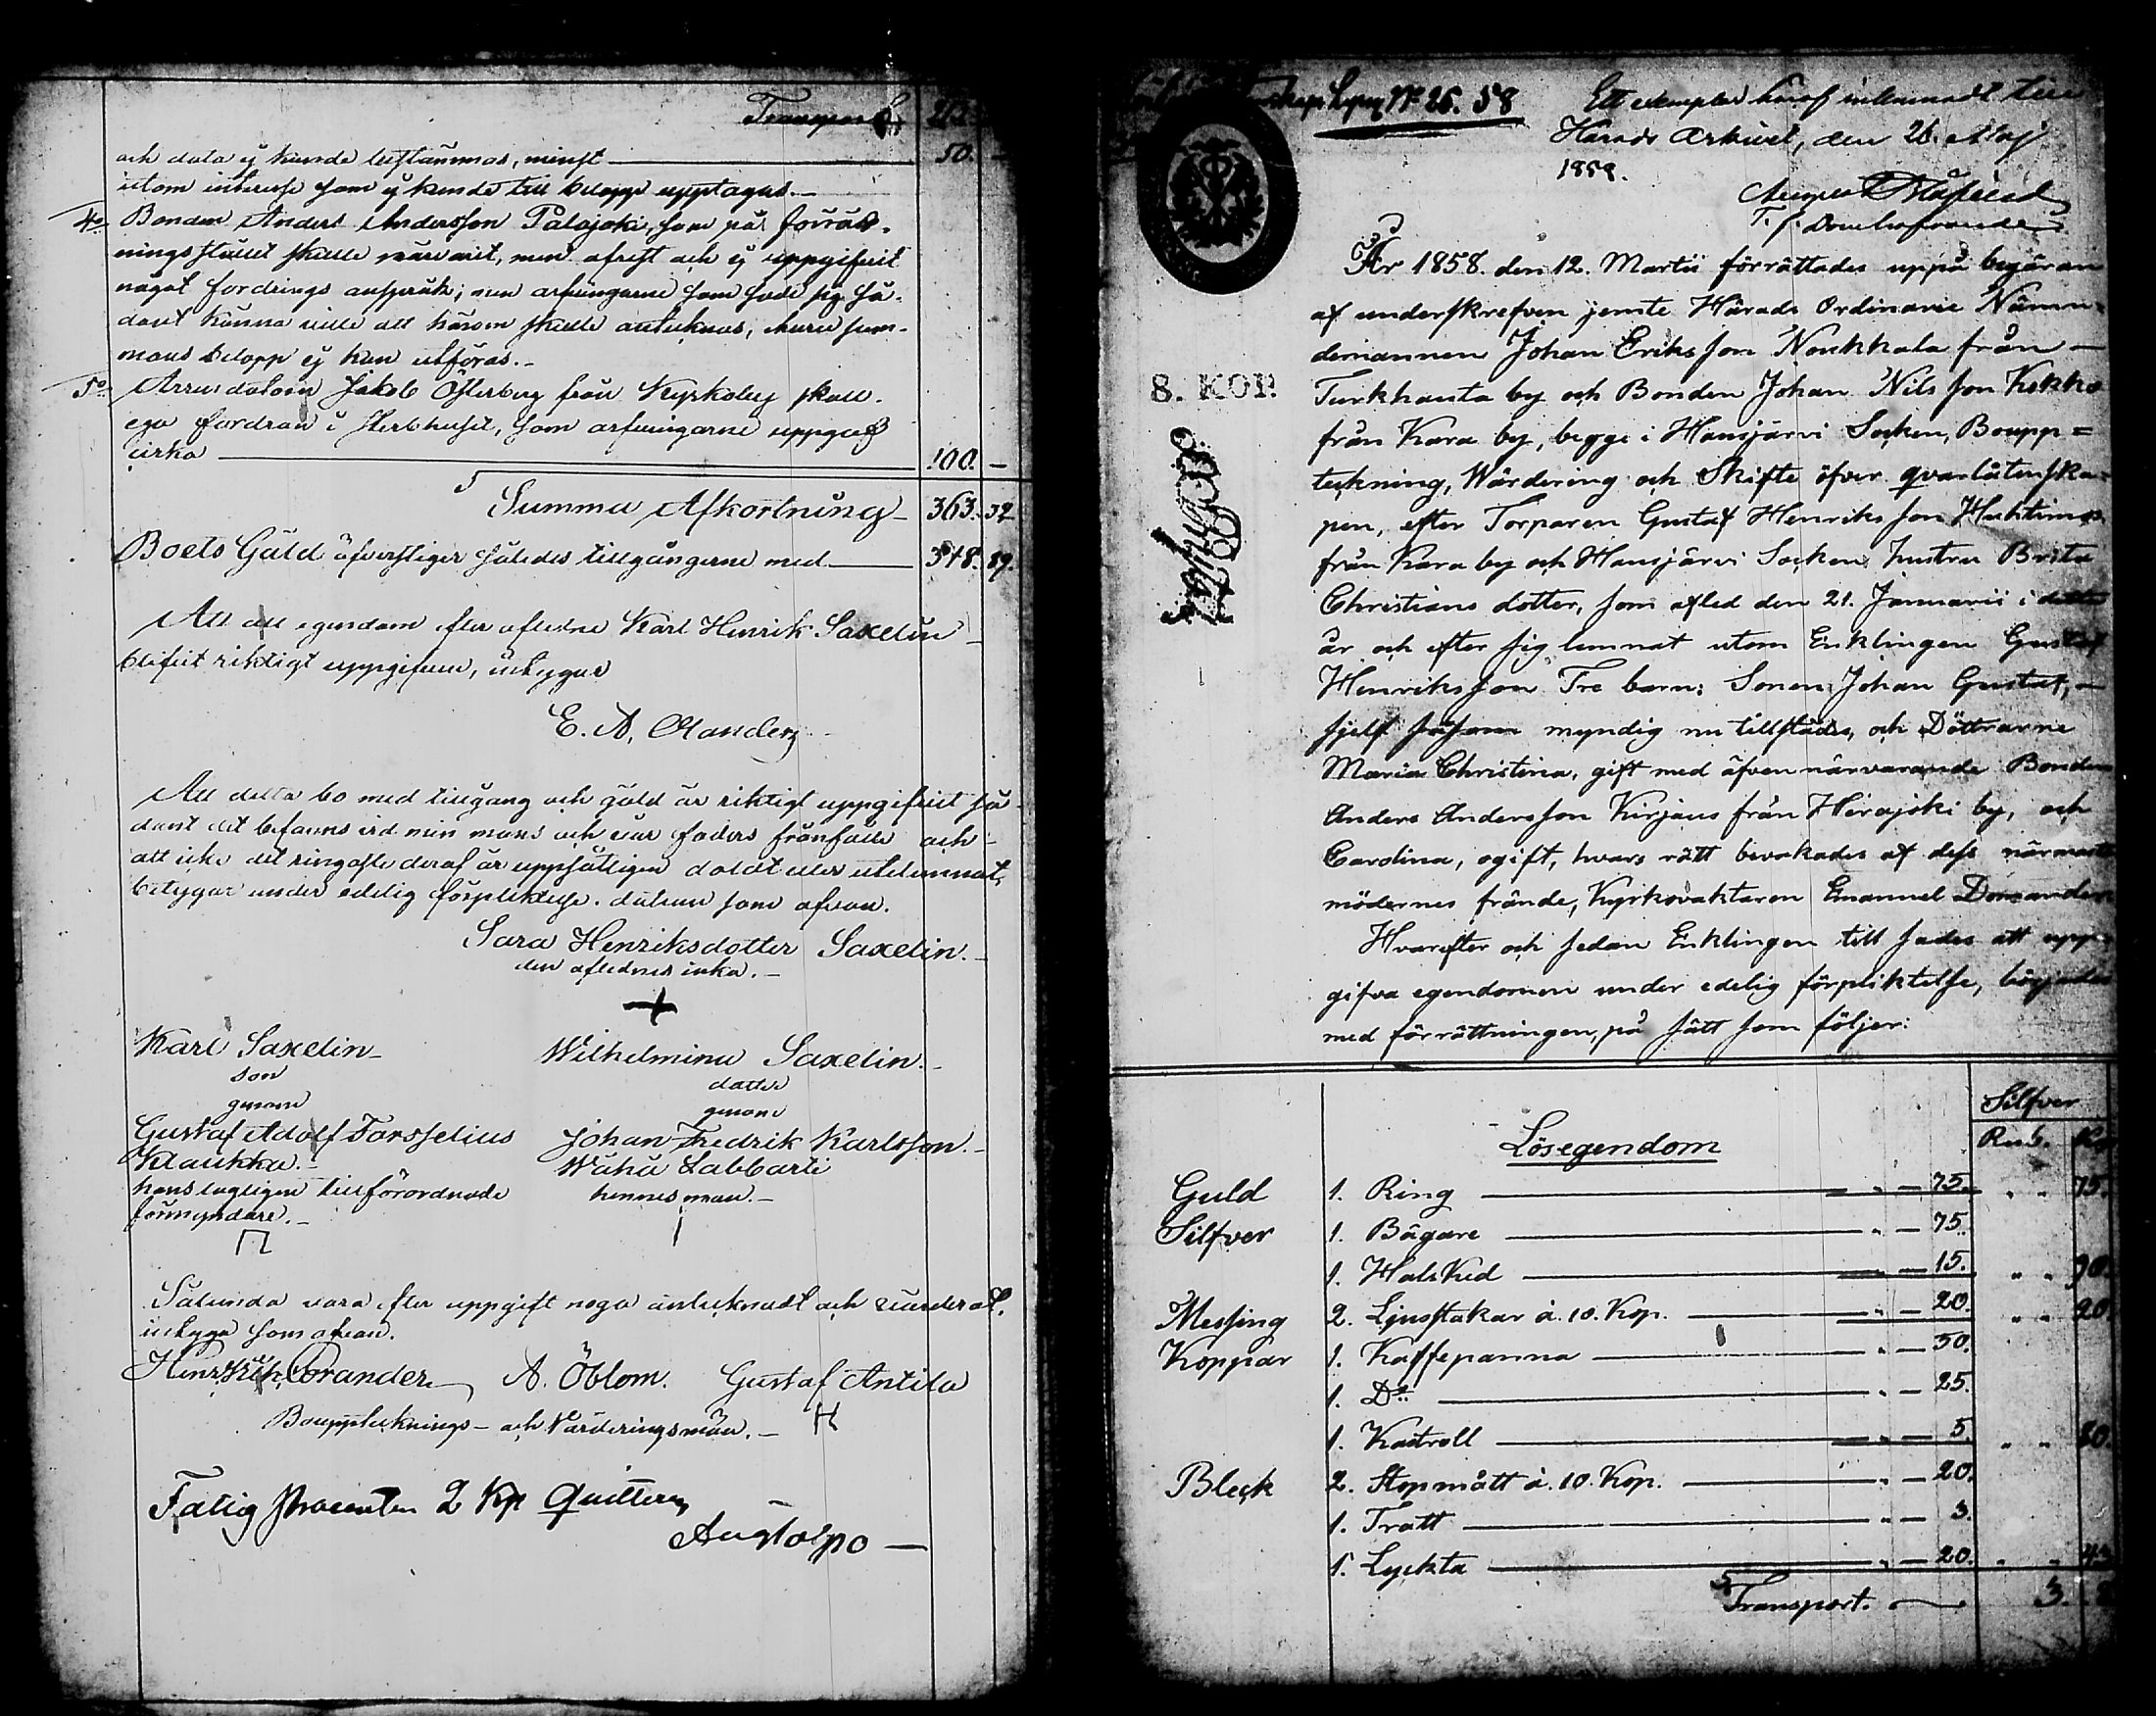 Transport
och data ej kunde bestämmas, minst 50. —
utom intresse som ej kunde till belopp upptagas.—
4o Bonden Anders Andersson Palojoki, som på förrätt-
ningsstället skulle närvarit, men afrest och ej uppgifvit
något fordrings anspråk; men arfvingarne som sade sig så-
dant kunna ville att härom skulle antecknas, hvars sum-
mans belopp ej kan utföras.—
5o Arrendatorn Jakob Österberg från Kyrkoby skall
ega fordran i Sterbhuset, som arfvingarne uppgaf
cirka 100. —
Summa Afkortning — 363. 52
Boets Gäld öfverstiger således tillgångarne med — 348. 89.
Att all egendom efter aflidne Karl Henrik Saxelin
blifvit riktigt uppgifven, intygar
E. A. Olander
Att detta bo med tillgång och gäld är riktigt uppgifvit så-
dant det befanns vid min mans och vår faders frånfälle och
att icke det ringaste deraf är uppsåtligen doldt eller utelemnat,
betygar under edelig förpliktelse. datum som ofvan.
Sara Henriksdotter Saxelin.—
den aflidnes enka.—
Karl Saxelin Wilhelmina Saxelin.—
son dotter
genom genom
Gustaf Adolf Forsselius Johan Fredrik Karlsson.—
Klaukka.— Wähä Labbarti
hans lagligen tillförordnade hennes man.—
förmyndare.—
Sålunda vara efter uppgift noga antecknadt och värderat,
intyga som ofvan.
Henrik Corander A. Öblom. Gustaf Antila
Bouppteknings- och Värderingsmän.—
Fattig procenten 2 Kop Quitteras
Lyng No 26. 58 Ett exemplar häraf inlemnadt till
Härads Arkivet, den 26. Maj
1858.
T. f. Domhafvande
År 1858 den 12. Martii förrättades uppå begäran
af underskrefven jemte Härads Ordinarie Nämn-
demannen Johan Eriksson Noukkala från —
8. KOP. Turkhauta by och Bonden Johan Nilsson Kekko
från Kara by, begge i Hausjärvi Socken, Boupp=
teckning, Wärdering och Skifte öfver qvarlåtenska-
pen, efter Torparen Gustaf Henriksson Huhtimos
från Kara by och Hausjärvi Socken hustru Brita
Christians dotter, som afled den 21. Januarii i detta
år och efter sig lemnat utom Enklingen Gustaf
Henriksson Tre barn: Sonen Johan Gustaf, —
sjelf såsom myndig nu tillstädes, och Döttrarne
Maria Christina, gift med äfven närvarande Bonden
Anders Andersson Kirjaus från Hirvijoki by, och
Carolina, ogift, hvars rätt bevakades af dess närmaste
mödernes frände, Kyrkovaktaren Emanuel Domander
Hvarefter och sedan Enklingen till sades att upp-
gifva egendomen under edelig förpliktelse, börjades
med förrättningen, på sätt som följer:
Silfver
Lösegendom Rub. Kop
Guld 1. Ring — " — 75. " " 75.
Silfver 1. Bägare — " — 75.
1. Halsked — " — 15. " " 90.
Messing 2. Ljusstakar à 10. Kop. — " — 20. " " 20.
Koppar 1. Kaffepanna — " — 50.
1. Do — " — 25.
1. Kastroll — " — 5. " " 80.
Bleck 2. Stopmått à 10. Kop. — " — 20.
1. Tratt — " — 3.
1. Lyckta — " — 20. " " 43
Transport. — 3.